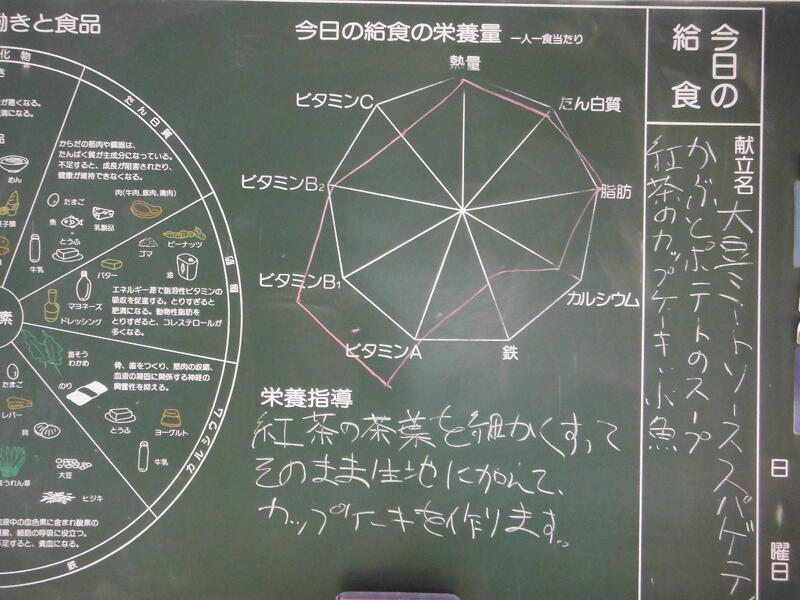 今日の給食
献立名
大豆ミートソーススパゲティ
かぶとポテトのスープ
紅茶のカップケーキ・小魚
日
曜日
今日の給食の栄養量 一人一食当たり
熱量
たん白質
脂肪
カルシウム
鉄
ビタミンA
ビタミンB1
ビタミンB2
ビタミンC
栄養指導
紅茶の茶葉を細かくすって
そのまま生地に加えて、
カップケーキを作ります。
働きと食品
化物
たん白質
からだの筋肉や臓器は、
たんぱく質が主成分になっている。
不足すると、成長が阻害されたり、
健康が維持できなくなる。
肉(牛肉、豚肉、鶏肉)
たまご
魚
乳製品
とうふ
牛乳
めん
脂肪
ピーナッツ
ゴマ
油
バター
マヨネーズ
ドレッシング
エネルギー源で脂溶性ビタミンの
吸収を促進する。とりすぎると
肥満になる。動物性脂肪を
とりすぎると、コレステロールが
多くなる。
カルシウム
骨、歯をつくり、筋肉の収縮、
血液の凝固に関係する神経の
興奮性を抑える。
海そう
わかめ
のり
とうふ
ヨーグルト
牛乳
鉄
たまご
レバー
貝
大豆
ヒジキ
ほうれん草
血液中の血色素に含まれ酸素の
、細胞の呼吸に役立つ。
不足すると、貧血になる。
が悪くなる。
になる。
素